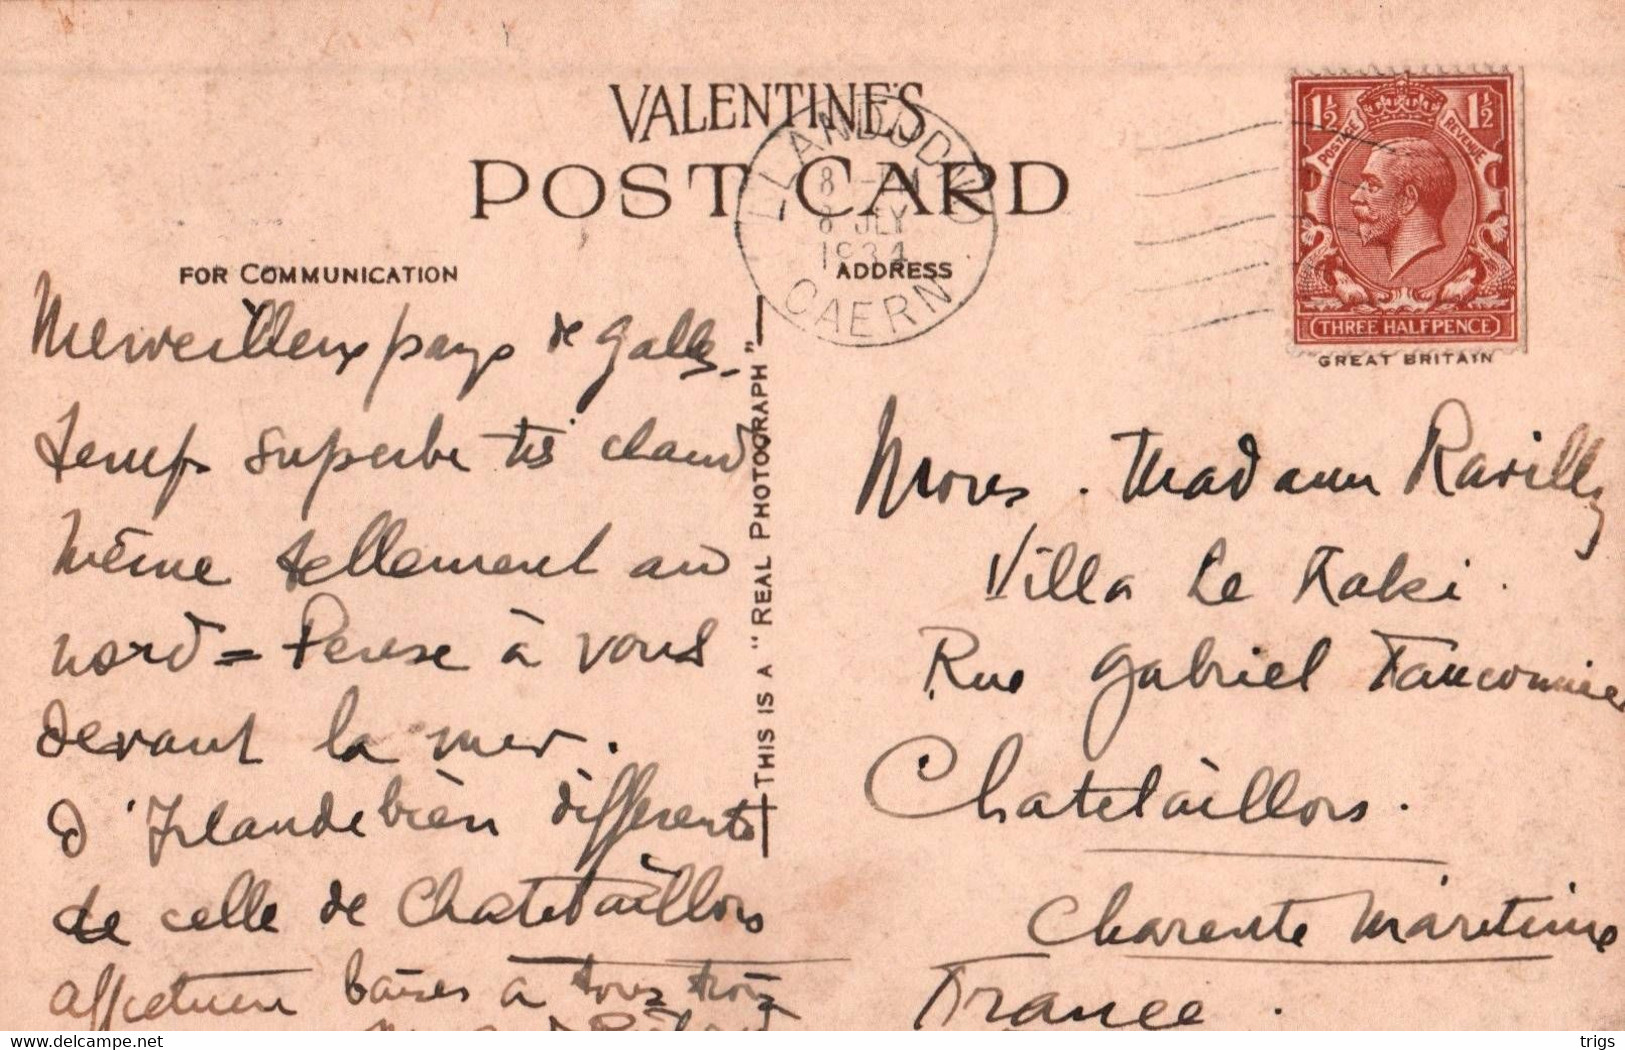 VALENTINE'S
POST CARD
FOR COMMUNICATION
ADDRESS
LLANDUDNO
8 JLY
1934
CAERN
POSTAGE REVENUE
1½ 1½
THREE HALFPENCE
GREAT BRITAIN
THIS IS A "REAL PHOTOGRAPH"
Merveilleux pays de Galles
temps superbe très chaud
même tellement au
nord = Pense à vous
devant la mer.
d'Irlande bien différente
de celle de Chatelaillon
affectueux baisers à tous trois
Madame Ravilly
Villa Le Kaki.
Rue Gabriel Fauconnier
Chatelaillon.
Charente Maritime
France.
delcampe.net
trigs